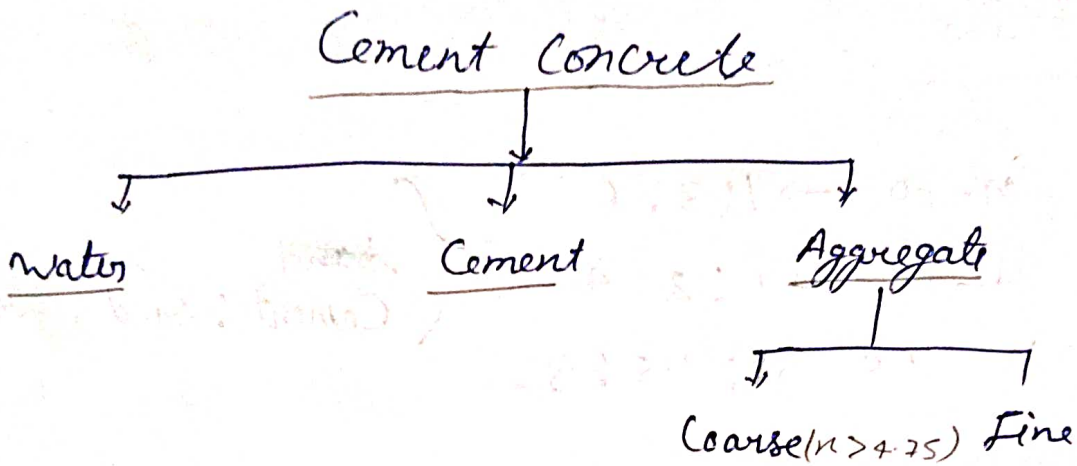 Cement Concrete
Water Cement Aggregate
Coarse (n > 4.75) Fine